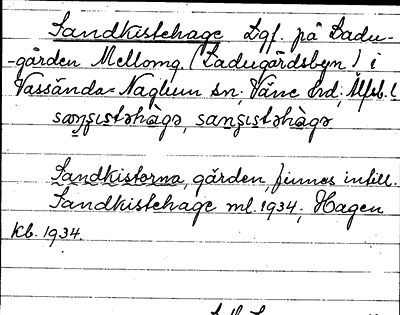 Sandkistehage Lgf. på Ladu-
-gården Mellomg. (Ladugårdsbyn) i
Vassända-Naglum sn; Väne hd; Älfsb. l.
Sandkistorna, gården, finnes intill.
Sandkistehage ml. 1934, Hagen
kb. 1934.